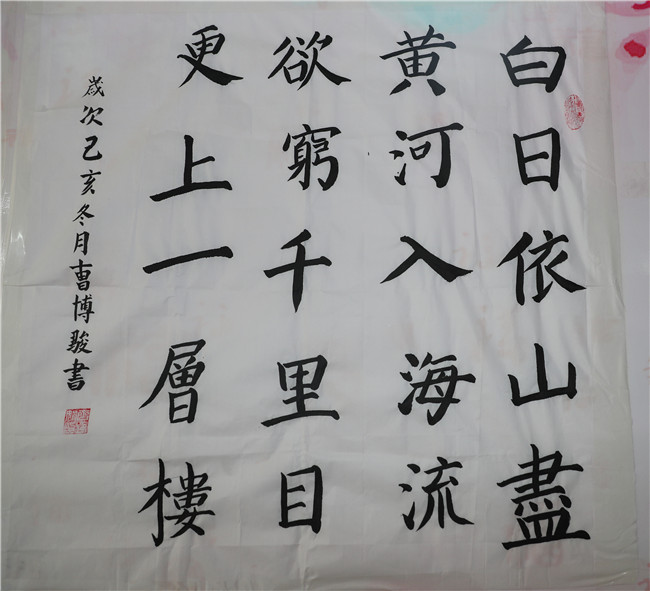 白日依山盡
黄河入海流
欲窮千里目
更上一層樓
歲次己亥冬月曹博駿書